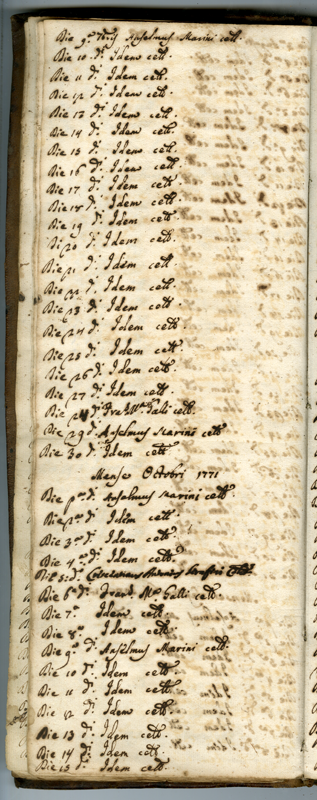 Die 9.ª 7bris Anselmus Marini celt.
Die 10 dì. Idem celt.
Die 11 dì. Idem celt.
Die 12 dì. Idem celt.
Die 13 dì. Idem celt.
Die 14 dì. Idem celt.
Die 15 dì. Idem celt.
Die 16 dì. Idem celt.
Die 17 dì. Idem celt.
Die 18 dì. Idem celt.
Die 19 dì. Idem celt.
Die 20 dì. Idem celt.
Die 21 dì. Idem celt.
Die 22 dì. Idem celt.
Die 23 dì. Idem celt.
Die 24 dì. Idem celt.
Die 25 dì. Idem celt.
Die 26 dì. Idem celt.
Die 27 dì. Idem celt.
Die 28 dì. celt.
Die 29 dì. Anselmus Marini celt.
Die 30 dì. Idem celt.
Mense Octobri 1771
Die pª dì. Anselmus Marini celt.
Die 2ª dì. Idem celt.
Die 3ª dì. Idem celt.
Die 4ª dì. Idem celt.
Die 5: dì. celt.
Die 6ª dì. Mª Galli celt.
Die 7ª Idem celt.
Die 8ª Idem celt.
Die 9ª dì. Anselmus Marini celt.
Die 10 dì. Idem celt.
Die 11 dì. Idem celt.
Die 12 dì. Idem celt.
Die 13 dì. Idem celt.
Die 14 dì. Idem celt.
Die 15 dì. Idem celt.